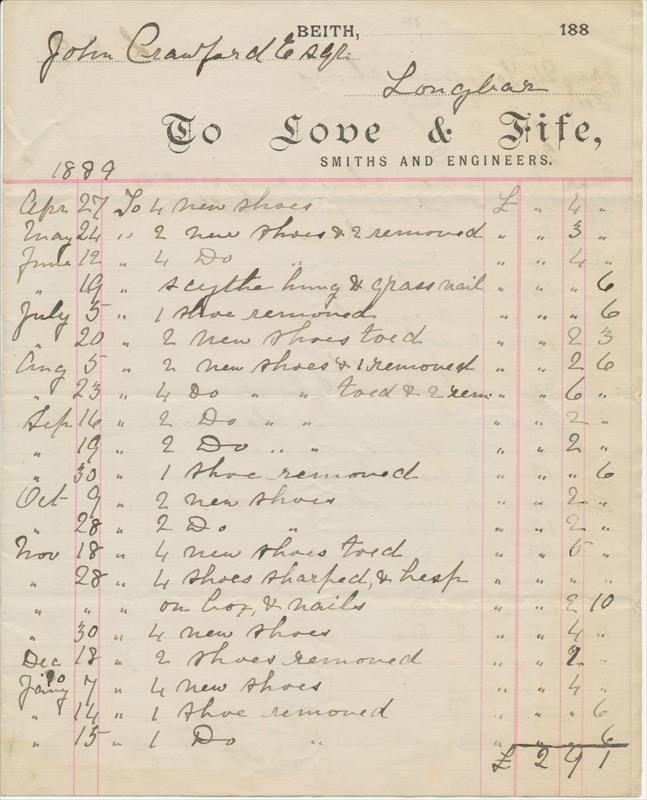 BEITH, 188
John Crawford Esqr.
Longbar
To Love & Fife,
SMITHS AND ENGINEERS.
1889
Apr 27 To 4 new shoes £ " 4 "
May 24 " 2 new shoes & 2 removed " " 3 "
June 12 " 4 Do " " " 4 "
" 19 " scythe hung & grass nail " " " 6
July 5 " 1 shoe removed " " " 6
" 20 " 2 new shoes toed " " 2 3
Aug 5 " 2 new shoes & 1 removed " " 2 6
" 23 " 4 do " " toed & 2 rem " " 6 "
Sep 16 " 2 Do " " " " 2 "
" 19 " 2 Do " " " " 2 "
" 30 " 1 shoe removed " " " 6
Oct 9 " 2 new shoes " " 2 "
" 28 " 2 Do " " " 2 "
Nov 18 " 4 new shoes toed " " 5 "
" 28 " 4 shoes sharped, & hesp " " " "
" " " on box, & nails " " 2 10
" 30 " 4 new shoes " " 4 "
Dec 18 " 2 shoes removed " " 2 "
90
Jany 7 " 4 new shoes " " 4 "
" 14 " 1 shoe removed " " " 6
" 15 " 1 Do " " " " 6
£ 2 9 1